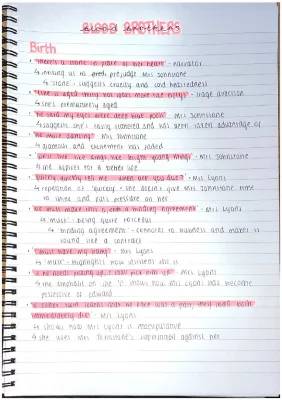 BLOOD BROTHERS
Birth
"there's a stone in place of her heart" - narrator
↳ inviting us to prejudge Mrs Johnstone
↳ 'stone' - suggests cruelty and cold heartedness
- stage direction
↳ she's prematurely aged
"he said my eyes were deep blue pools" - Mrs Johnstone
↳ suggests she's being flattered and has been taken advantage of
"no more dancing" - Mrs Johnstone
↳ glamour and excitement has faded
"we'll live like kings, like bright young things" - Mrs Johnstone
↳ she aspires for a better life
"quickly, quickly tell me ... when are you due?" - Mrs Lyons
↳ repetition of 'quickly' - she doesn't give Mrs Johnstone time
to think and puts pressure on her
"we must make this a, erm, a binding agreement" - Mrs Lyons
↳ 'must' - being quite forceful
↳ 'binding agreement' - connotes to business and makes it
sound like a contract
"I must have my baby" - Mrs Lyons
↳ 'must' - highlights how insistent she is
"if he needs picking up, I shall pick him up" - Mrs Lyons
↳ the emphasis on the 'I' shows how Mrs Lyons has become
possessive of Edward
"if either twin learns that he once was a pair, they shall both
immediately die" - Mrs Lyons
↳ shows how Mrs Lyons is manipulative
↳ she uses Mrs Johnstone's superstition against her